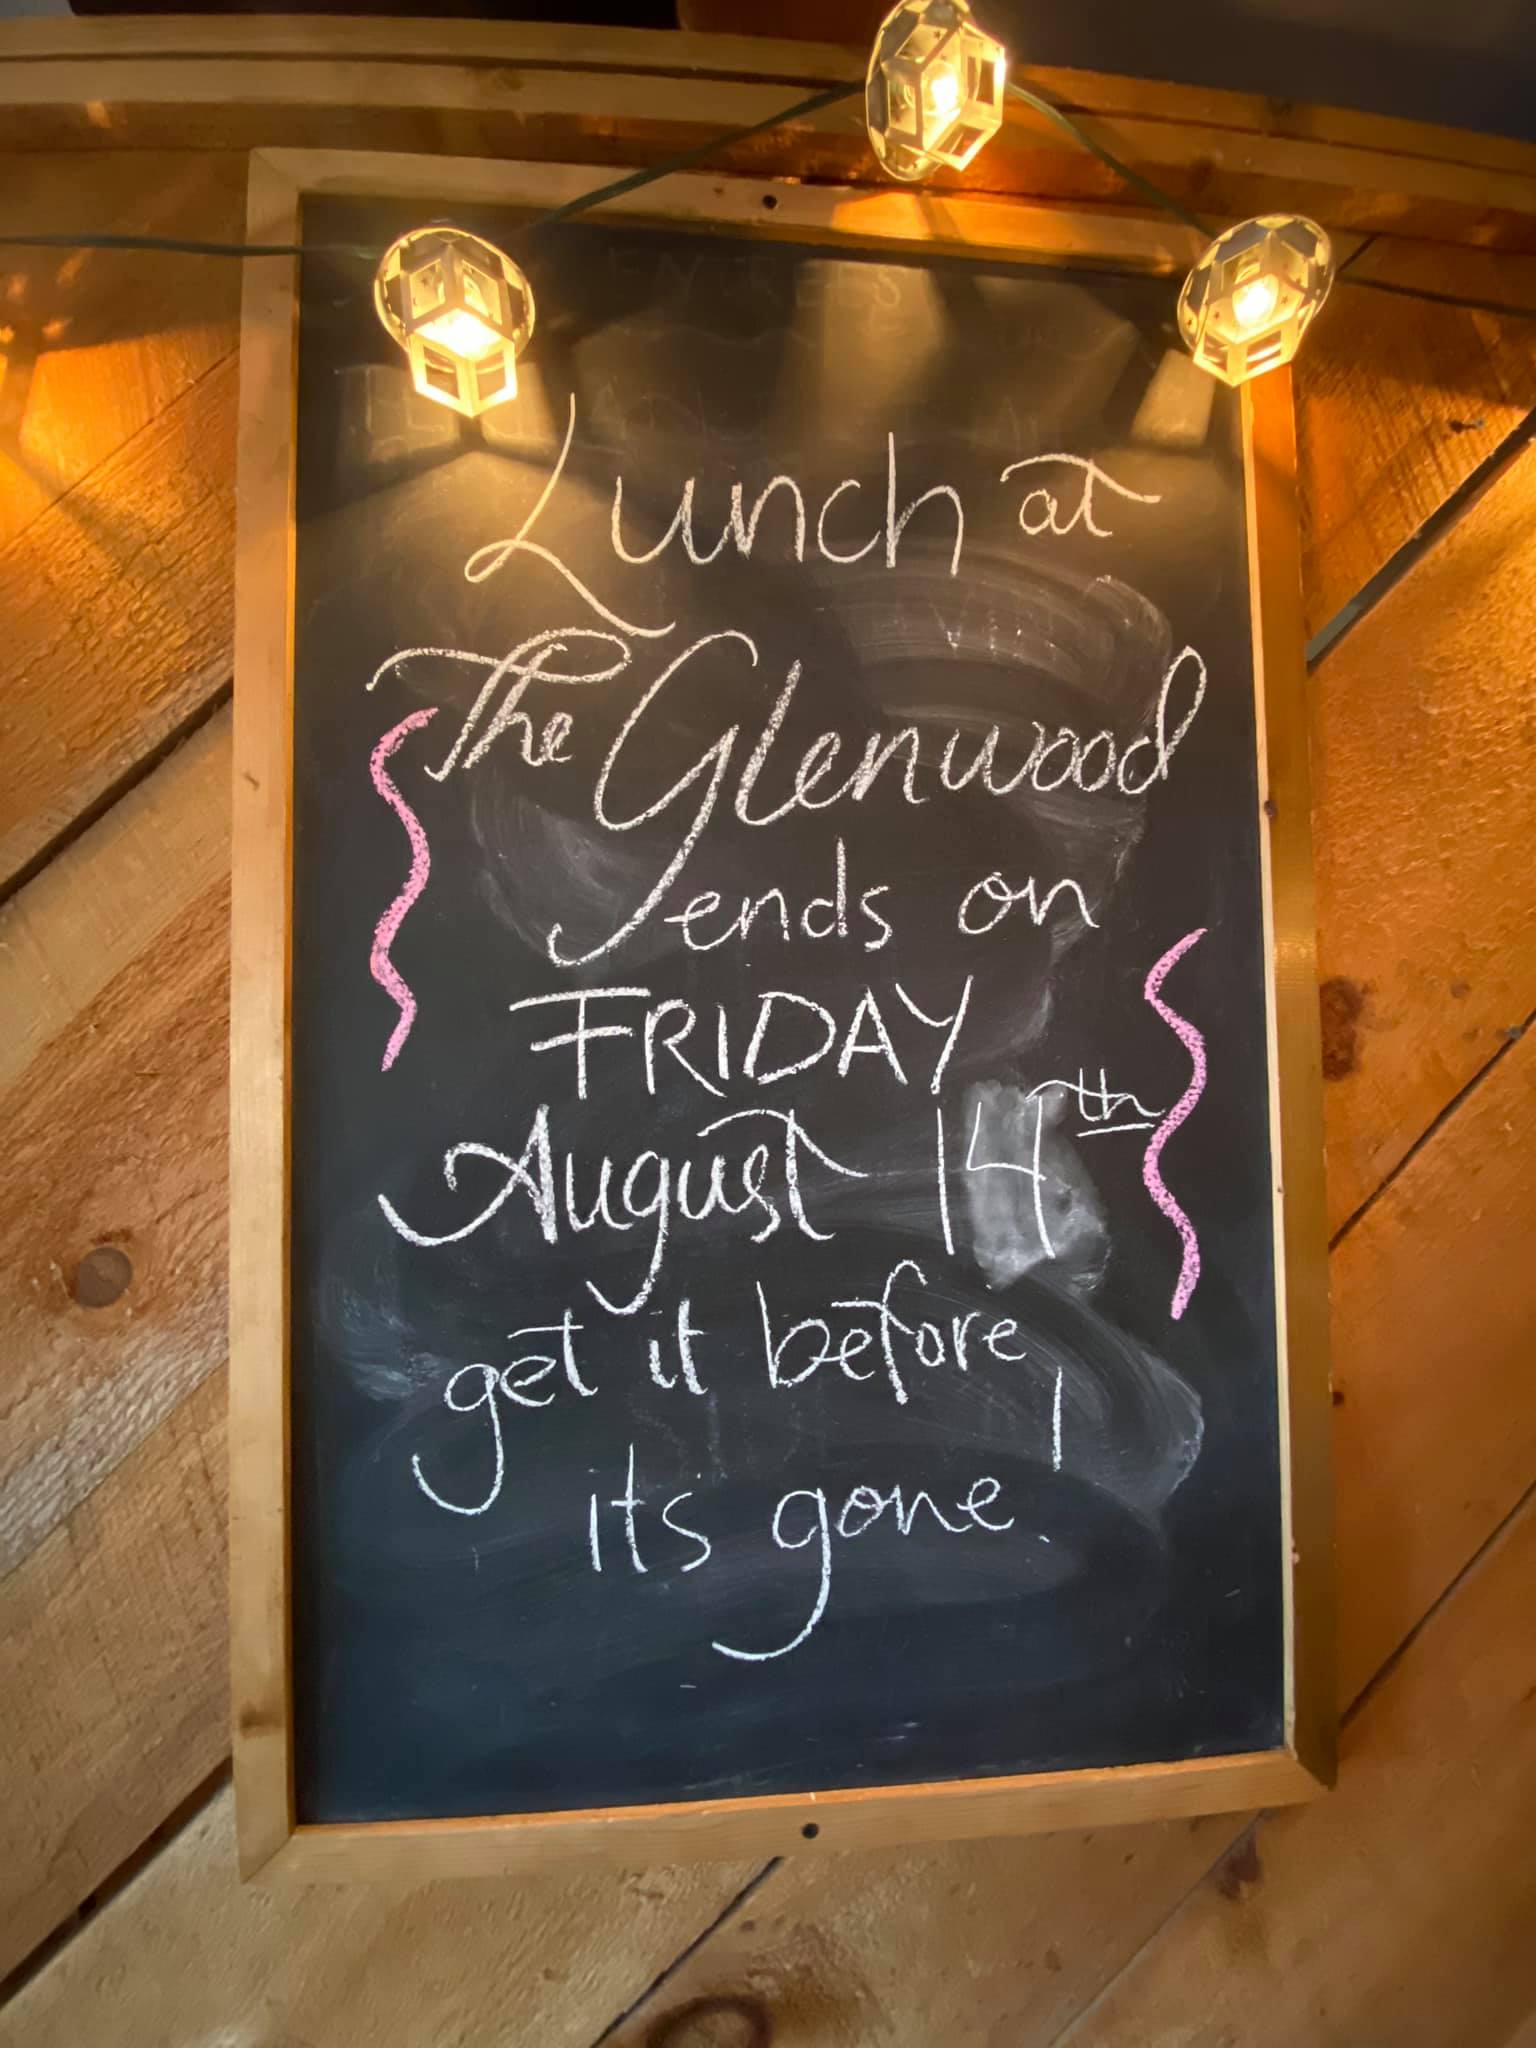 Lunch at
The Glenwood
ends on
FRIDAY
August 14th
get it before
its gone!